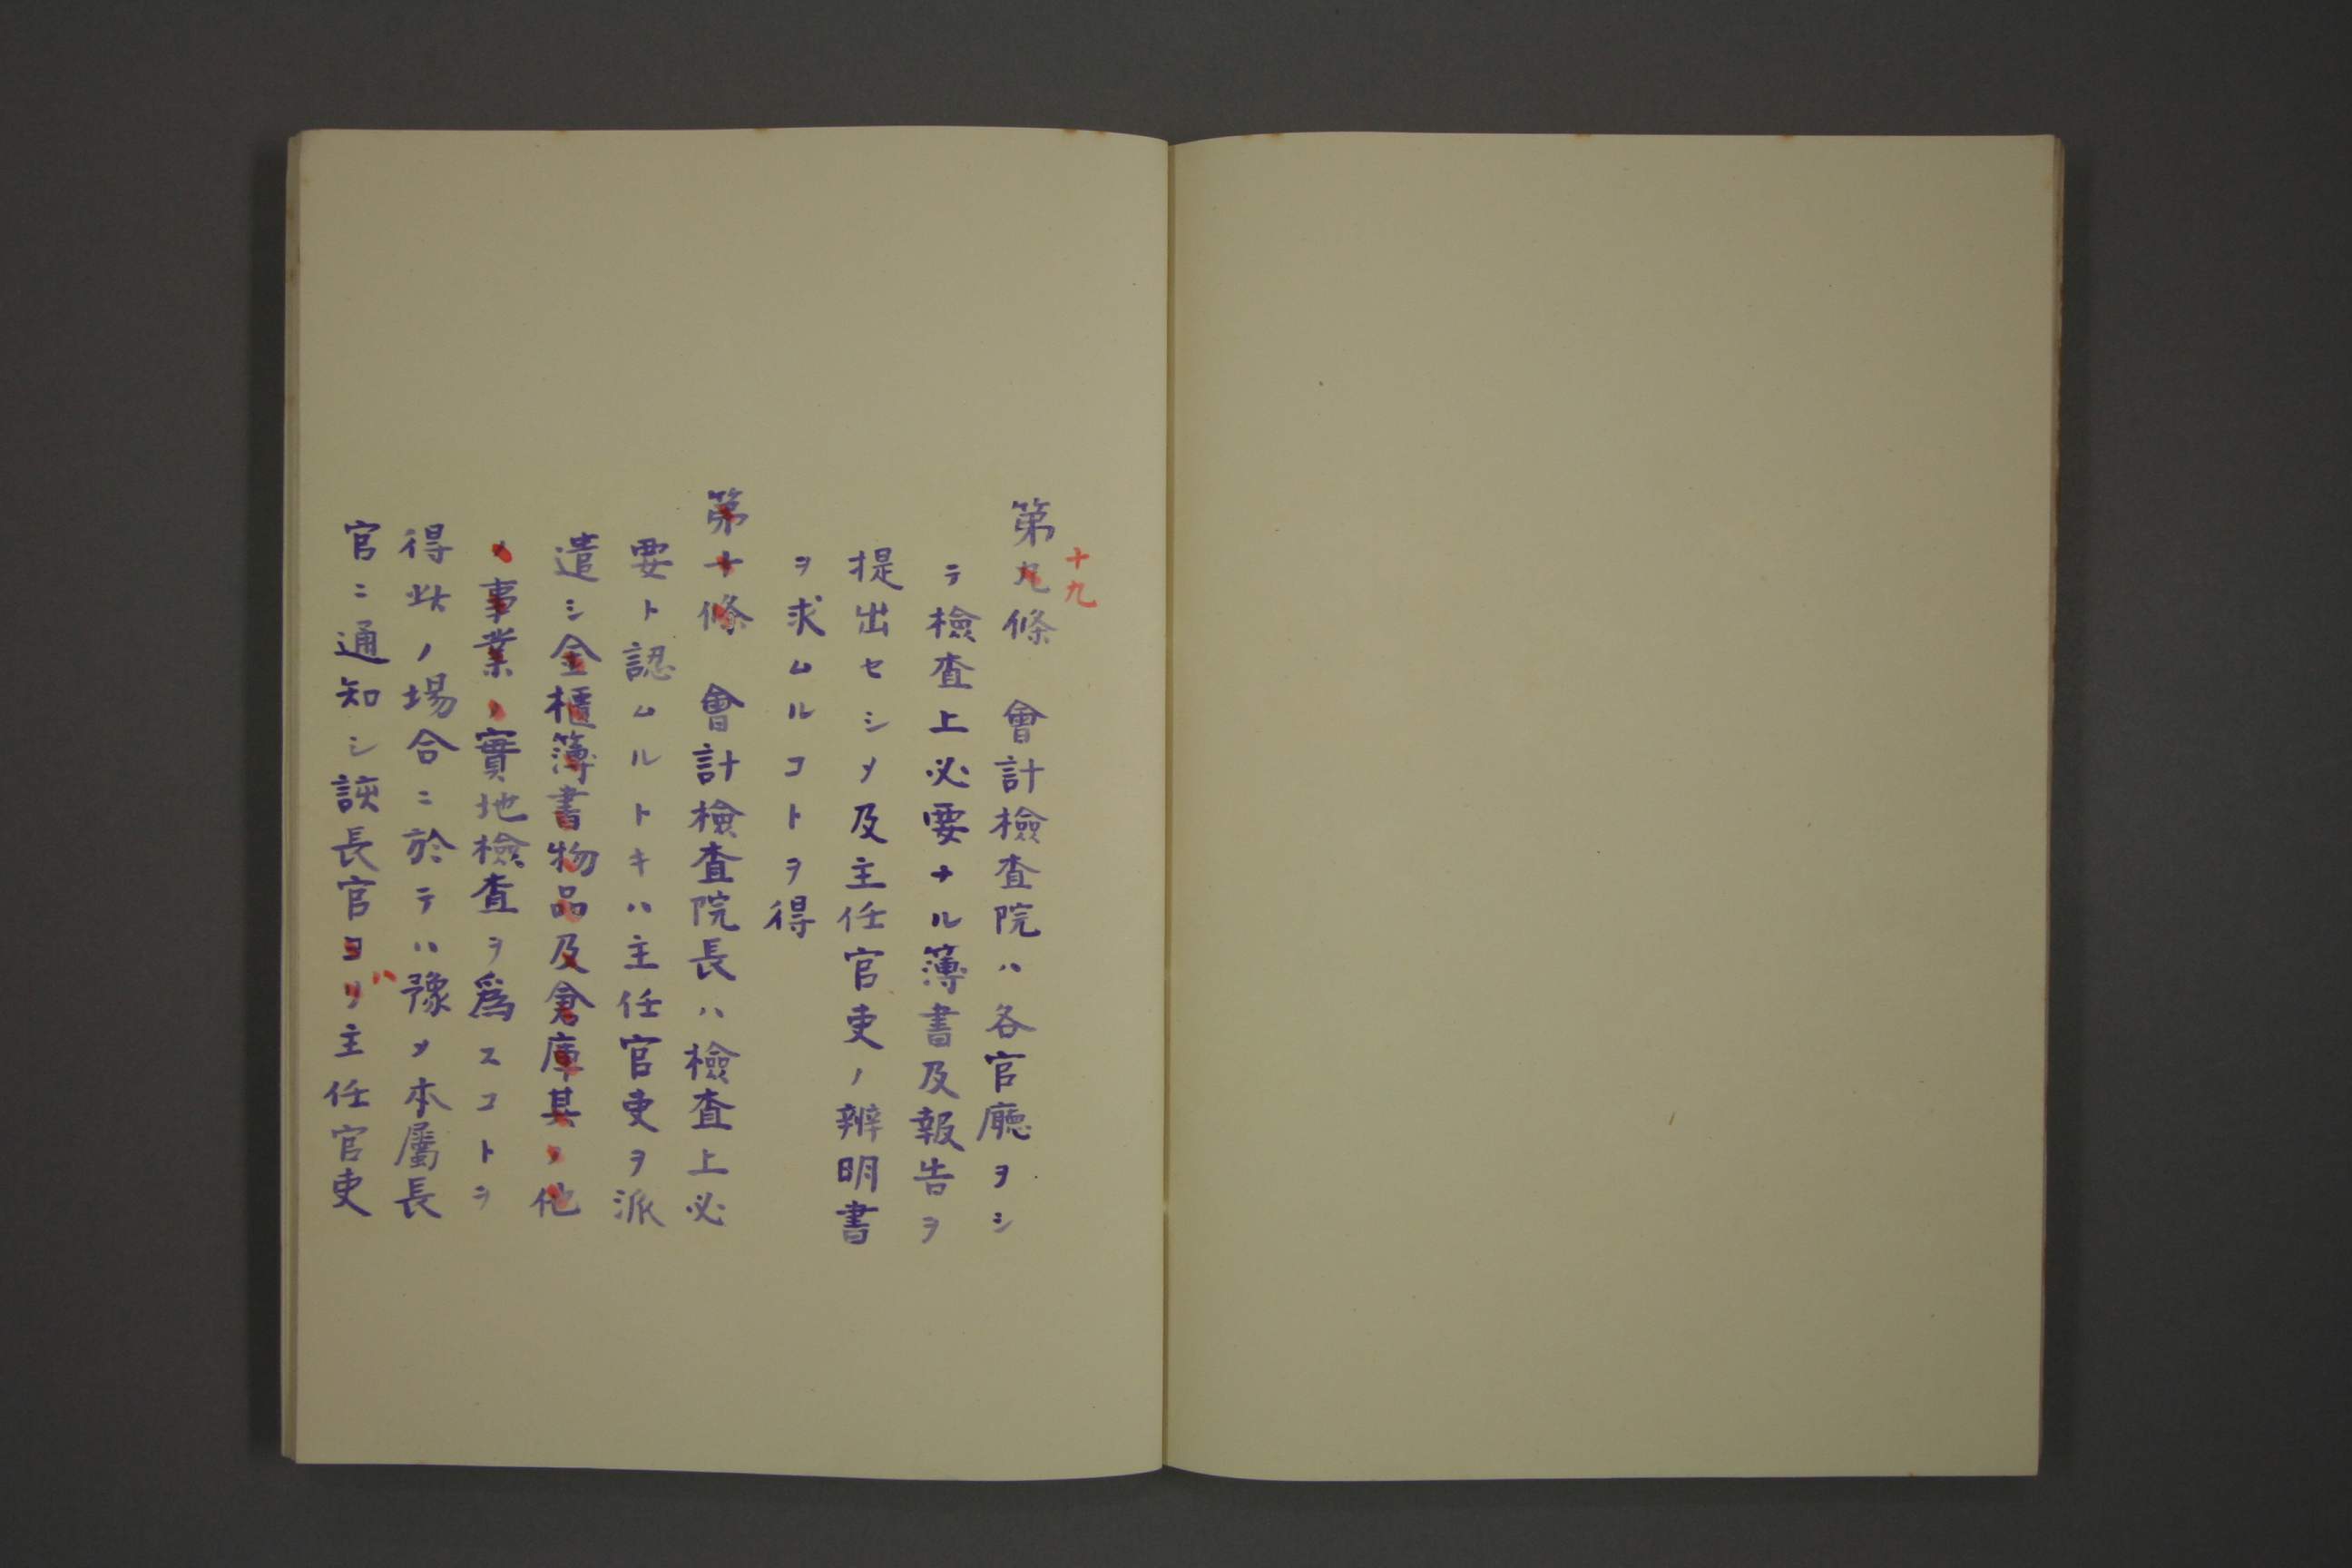 十九
第九條　會計檢査院ハ各官廳ヲシ
テ檢査上必要ナル簿書及報告ヲ
提出セシメ及主任官吏ノ辨明書
ヲ求ムルコトヲ得
第十條　會計檢査院長ハ檢査上必
要ト認ムルトキハ主任官吏ヲ派
遣シ金櫃簿書物品及倉庫其ノ他
ノ事業ノ實地檢査ヲ爲スコトヲ
得此ノ場合ニ於テハ豫メ本屬長
ハ
官ニ通知シ該長官ヨリ主任官吏